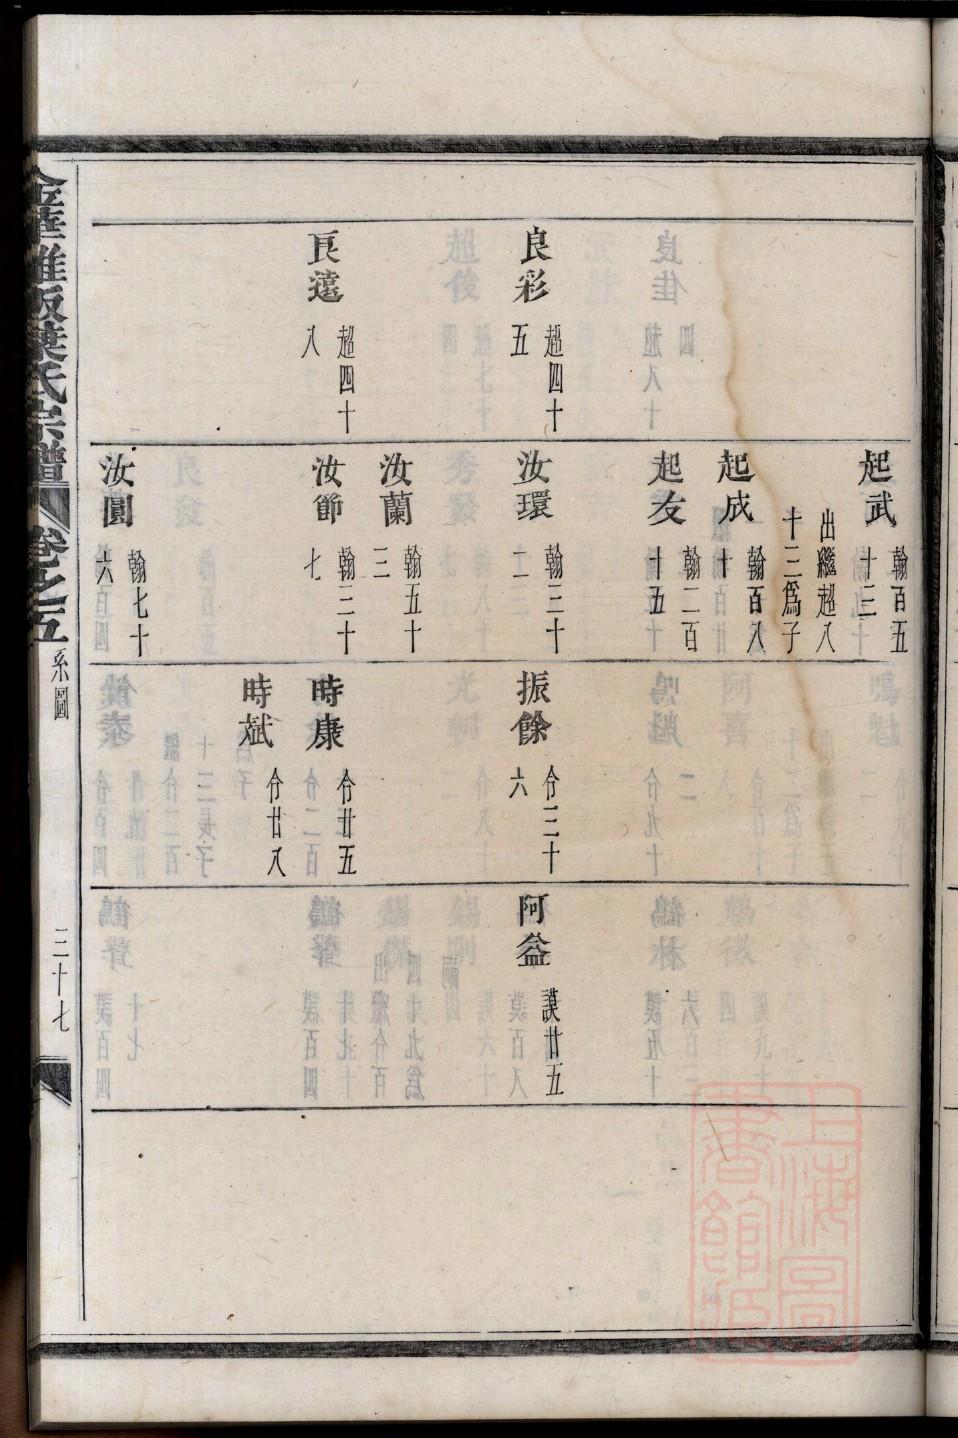 良彩
超四十
五
良遠
超四十
八
起武
翰百五
十三
出繼超八
十三爲子
起成
翰百八
十
起友
翰二百
十五
汝環
翰三十
二
汝蘭
翰五十
三
汝節
翰三十
七
汝圓
翰七十
六
振餘
分三十
六
時康
分廿五
時斌
分廿八
阿益
謨廿五
葉氏宗譜
卷之五
系圖
三十七
上海圖
書館藏